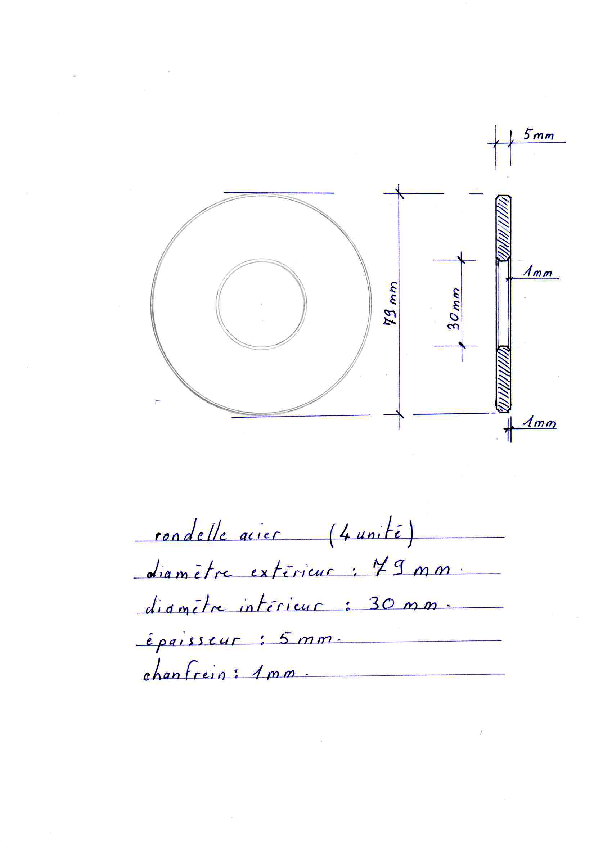 5mm
1mm
79mm
30mm
1mm
rondelle acier (4 unité)
diamètre extérieur : 79 mm.
diamètre intérieur : 30 mm.
épaisseur : 5 mm.
chanfrein : 1 mm.